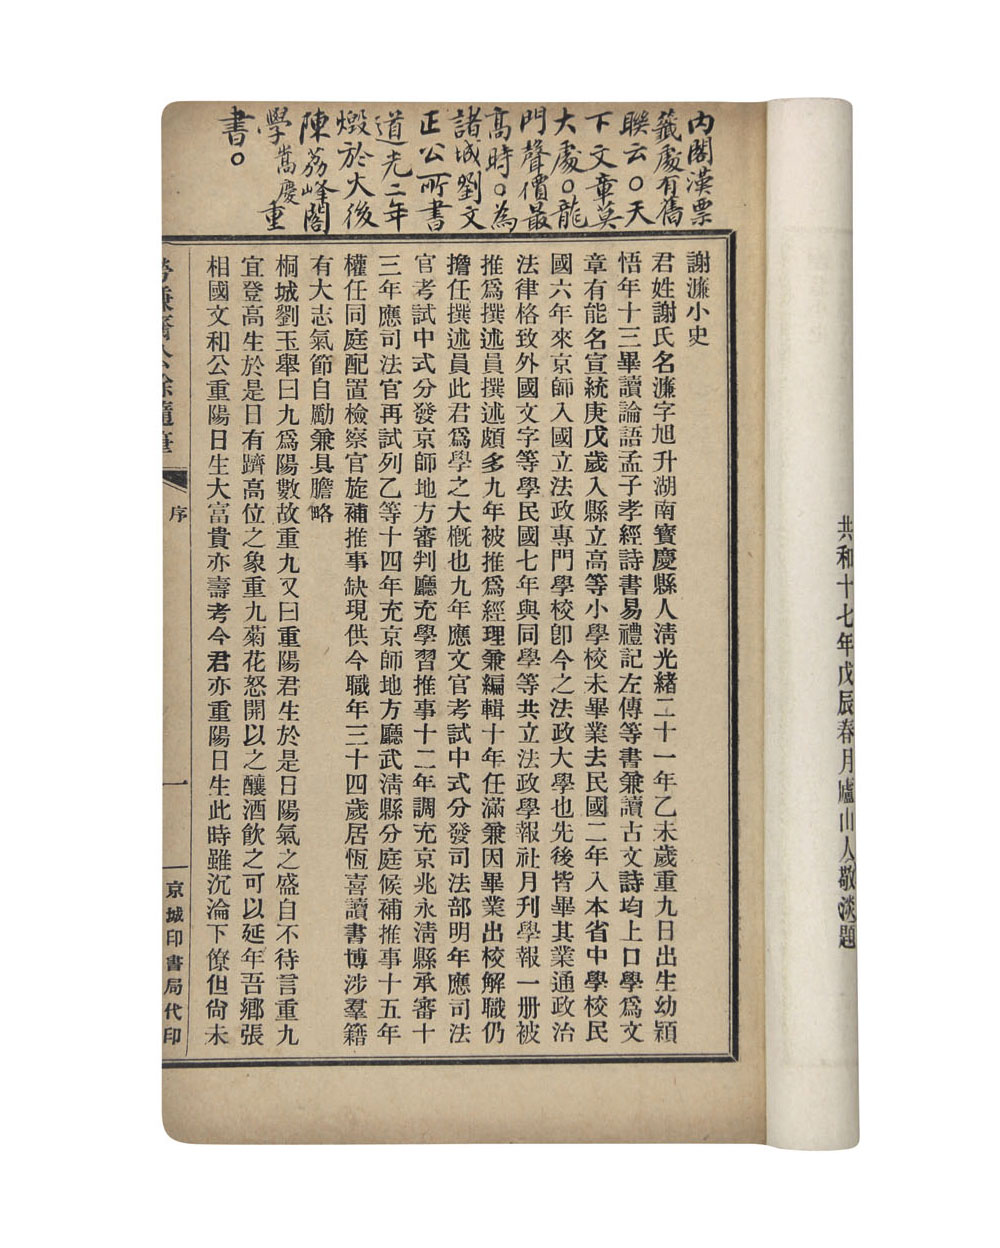 共和十七年戊辰春月廬山人敬淡題
內閣漢票
籤處有舊
聯云。天
下文章莫
大處。龍
門聲價最
高時。為
諸城劉文
正公所書
道光二年
燬於火後
陳荔峰閣
學嵩慶重
書。
謝濂小史
君姓謝氏名濂字旭升湖南寶慶縣人淸光緒二十一年乙未歲重九日出生幼穎
悟年十三畢讀論語孟子孝經詩書易禮記左傳等書兼讀古文詩均上口學爲文
章有能名宣統庚戊歲入縣立高等小學校未畢業去民國二年入本省中學校民
國六年來京師入國立法政專門學校卽今之法政大學也先後皆畢其業通政治
法律格致外國文字等學民國七年與同學等共立法政學報社月刊學報一册被
推爲撰述員撰述頗多九年被推爲經理兼編輯十年任滿兼因畢業出校解職仍
擔任撰述員此君爲學之大槪也九年應文官考試中式分發司法部明年應司法
官考試中式分發京師地方審判廳充學習推事十二年調充京兆永淸縣承審十
三年應司法官再試列乙等十四年充京師地方廳武淸縣分庭候補推事十五年
權任同庭配置檢察官旋補推事缺現供今職年三十四歲居恆喜讀書博涉羣籍
有大志氣節自勵兼具膽略
桐城劉玉舉曰九爲陽數故重九又曰重陽君生於是日陽氣之盛自不待言重九
宜登高生於是日有躋高位之象重九菊花怒開以之釀酒飮之可以延年吾鄕張
相國文和公重陽日生大富貴亦壽考今君亦重陽日生此時雖沉淪下僚但尙未
序
一
京城印書局代印